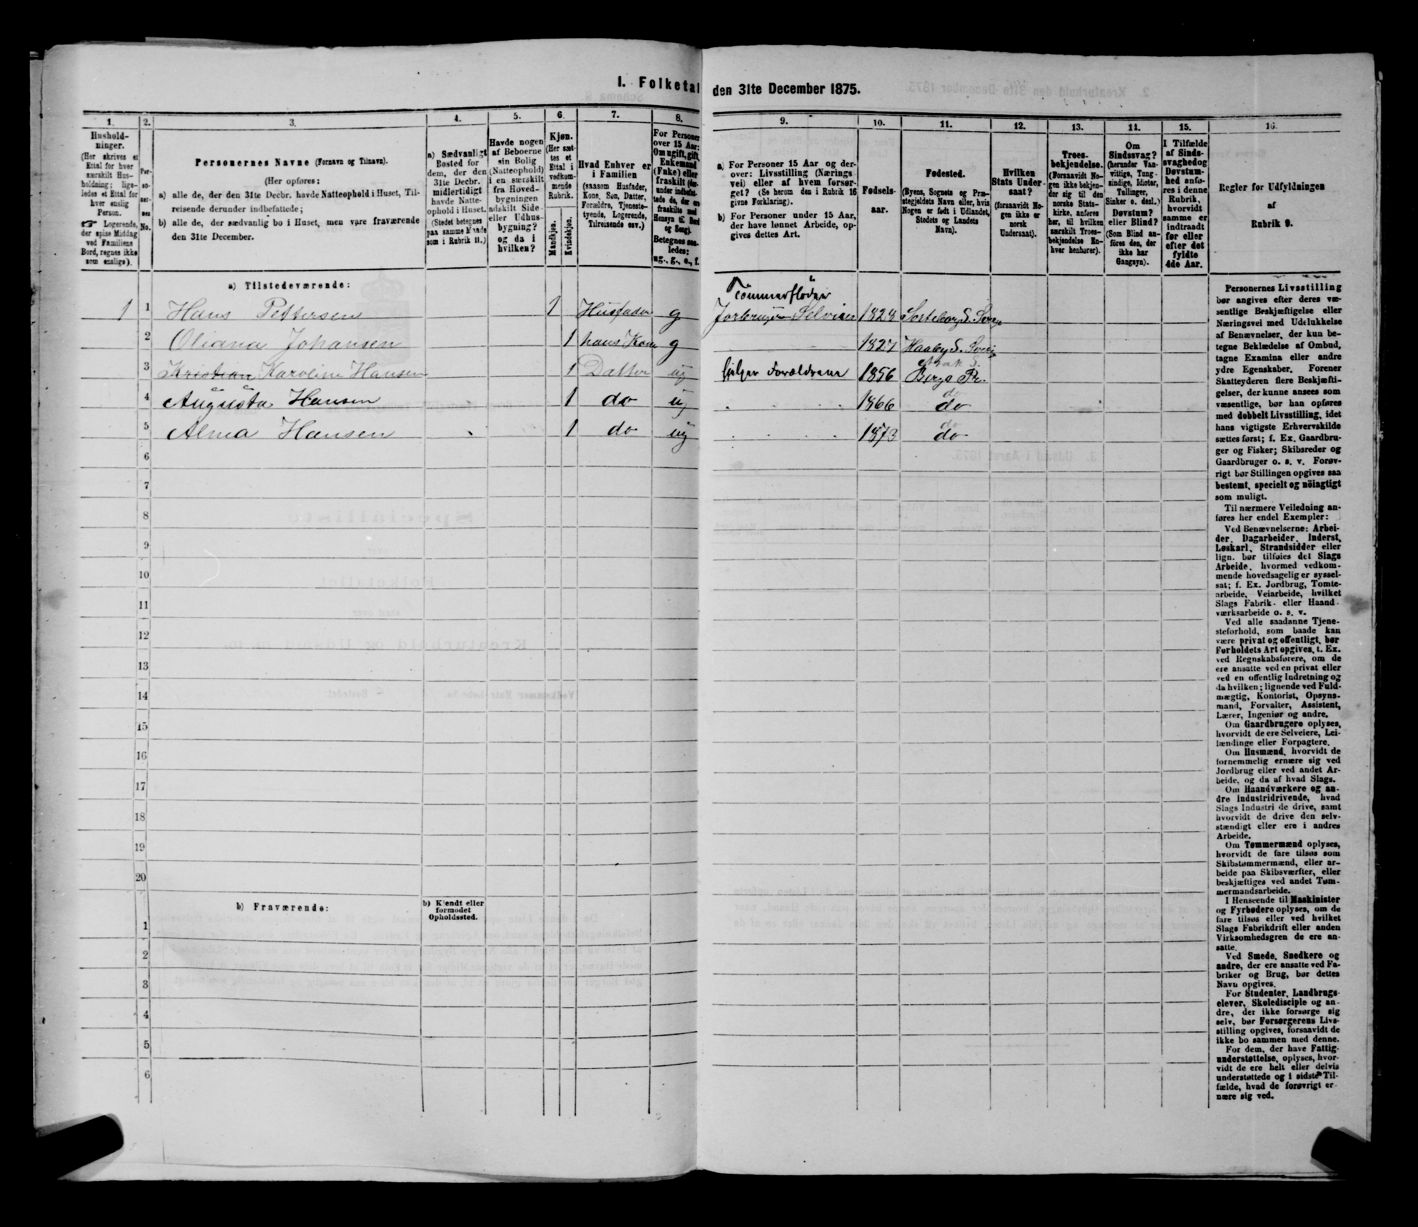 I. Folketal den 31te December 1875.
1.
Hushold-
ninger.
(Her skrives et
Ettal for hver
særskilt Hus-
holdning; lige-
ledes et Ettal for
hver enslig
Person.
☞ Logerende,
der spise Middag
ved Familiens
Bord, regnes ikke
som enslige).
2.
Per-
so-
ner-
nes
No.
3.
Personernes Navne (Fornavn og Tilnavn).
(Her opføres:
a) alle de, der den 31te Decbr. havde Natteophold i Huset, Til-
reisende derunder indbefattede;
b) alle de, der sædvanlig bo i Huset, men vare fraværende
den 31te December.
4.
a) Sædvanligt
Bosted for
dem, der den
31te Decbr.
midlertidigt
havde Natte-
ophold i Huset.
(Stedet betegnes
paa samme Maade
som i Rubrik 11.)
5.
Havde nogen
af Beboerne
sin Bolig
(Natteophold)
i en særskilt
fra Hoved-
bygningen
adskilt Side-
eller Udhus-
bygning?
og da i
hvilken?
6.
Kjøn.
(Her sæt-
tes et
Ettal i
vedkom-
mende
Rubrik.
Mandkjøn.
Kvindekjøn.
7.
Hvad Enhver er
i Familien
(saasom Husfader,
Kone, Søn, Datter,
Forældre, Tjeneste-
tyende, Logerende,
Tilreisende osv.)
8.
For Personer
over 15 Aar:
Om ugift, gift,
Enkemand
(Enke) eller
fraskilt
Betegnes saa-
ledes:
ug., g., e., f.
9.
a) For Personer 15 Aar og der-
over: Livsstilling (Nærings-
vei) eller af hvem forsør-
get? (Se herom den i Rubrik 16
givne Forklaring).
b) For Personer under 15 Aar,
der have lønnet Arbeide, op-
gives dettes Art.
10.
Fødsels-
aar.
11.
Fødested.
(Byens, Sognets og Præ-
stegjeldets Navn, eller, hvis
Nogen er født i Udlandet,
Stedets og Landets
Navn).
12.
Hvilken
Stats Under-
saat?
(forsaavidt No-
gen ikke er
norsk
Undersaat).
13.
Troes-
bekjendelse.
(Forsaavidt No-
gen ikke bekjen-
der sig til den
norske Stats-
kirke, anføres
her, til hvilken
særskilt Troes-
bekjendelse En-
hver henhører).
14.
Om
Sindssvag?
(herunder Van-
vittige, Tung-
sindige, Idioter,
Tullinger,
Sinker o. desl.)
Døvstum?
eller Blind?
(Som Blind an-
føres den, der
ikke har
Gangsyn).
15.
I Tilfælde
af Sinds-
svaghed og
Døvstum-
hed anfø-
res i denne
Rubrik,
hvorvidt
samme er
indtraadt
før eller
efter det
fyldte
4de Aar.
16.
Regler for Udfyldningen
af
Rubrik 9.
a) Tilstedeværende:
Tømmerfløder
1 1 Hans Pettersen 1 Husfader g Jorbruger Selveier 1828
2 Oliana Johansen 1 hans Kone g 1827
3 Kristian Karoline Hansen 1 Datter ug hjelper Forældrene 1856 Bergs Pr.
4 Augusta Hansen 1 do ug 1866 do
5 Alma Hansen 1 do ug 1873 do
6
7
8
9
10
11
12
13
14
15
16
17
18
19
20
b) Fraværende:
b) Kjendt eller
formodet
Opholdssted.
1
2
3
4
5
6
Personernes Livsstilling
bør angives efter deres væ-
sentlige Beskjæftigelse eller
Næringsvei med Udelukkelse
af Benævnelser, der kun be-
tegne Beklædelse af Ombud,
tagne Examina eller andre
ydre Egenskaber. Forener
Skatteyderen flere Beskjæfti-
gelser, der kunne ansees som
væsentlige, bør han opføres
med dobbelt Livsstilling, idet
hans vigtigste Erhvervskilde
sættes først; f. Ex. Gaardbru-
ger og Fisker; Skibsreder og
Gaardbruger o. s. v. Forøv-
rigt bør Stillingen opgives saa
bestemt, specielt og nöiagtigt
som muligt.
Til nærmere Veiledning an-
føres her endel Exempler:
Ved Benævnelserne: Arbei-
der, Dagarbeider, Inderst,
Løskarl, Strandsidder eller
lign. bør tilføies det Slags
Arbeide, hvormed vedkom-
mende hovedsagelig er syssel-
sat; f. Ex. Jordbrug, Tomte-
arbeide, Veiarbeide, hvilket
Slags Fabrik- eller Haand-
værksarbeide o. s. v.
Ved alle saadanne Tjene-
steforhold, som baade kan
være privat og offentligt, bør
Forholdets Art opgives, t. Ex.
ved Regnskabsførere, om de
ere ansatte ved en privat eller
ved en offentlig Indretning og
da hvilken; lignende ved Fuld-
mægtig, Kontorist, Opsyns-
mand, Forvalter, Assistent,
Lærer, Ingeniør og andre.
Om Gaardbrugere oplyses,
hvorvidt de ere Selveiere, Lei-
lændinge eller Forpagtere.
Om Husmænd, hvorvidt de
fornemmelig ernære sig ved
Jordbrug eller ved andet Ar-
beide, og da af hvad Slags.
Om Haandværkere og an-
dre Industridrivende, hvad
Slags Industri de drive, samt
hvorvidt de drive den selv-
stændigt eller ere i andres
Arbeide.
Om Tømmermænd oplyses,
hvorvidt de fare tilsøs som
Skibstømmermænd, eller ar-
beide paa Skibsværfter, eller
beskjæftiges ved andet Tøm-
mermandsarbeide.
I Henseende til Maskinister
og Fyrbødere oplyses, om de
fare tilsøs eller ved hvilket
Slags Fabrikdrift eller anden
Virksomhedsgren de ere an-
satte.
Ved Smede, Snedkere og
andre, der ere ansatte ved Fa-
briker og Brug, bør dettes
Navn opgives.
For Studenter, Landbrugs-
elever, Skoledisciple og an-
dre, der ikke forsørge sig
selv, bør Forsørgerens Livs-
stilling opgives, forsaavidt de
ikke bo sammen med denne.
For dem, der have Fattig-
understøttelse, oplyses, hvor-
vidt de ere helt eller delvis
understøttede og i sidste Til-
fælde, hvad de forøvrigt er-
nære sig ved.